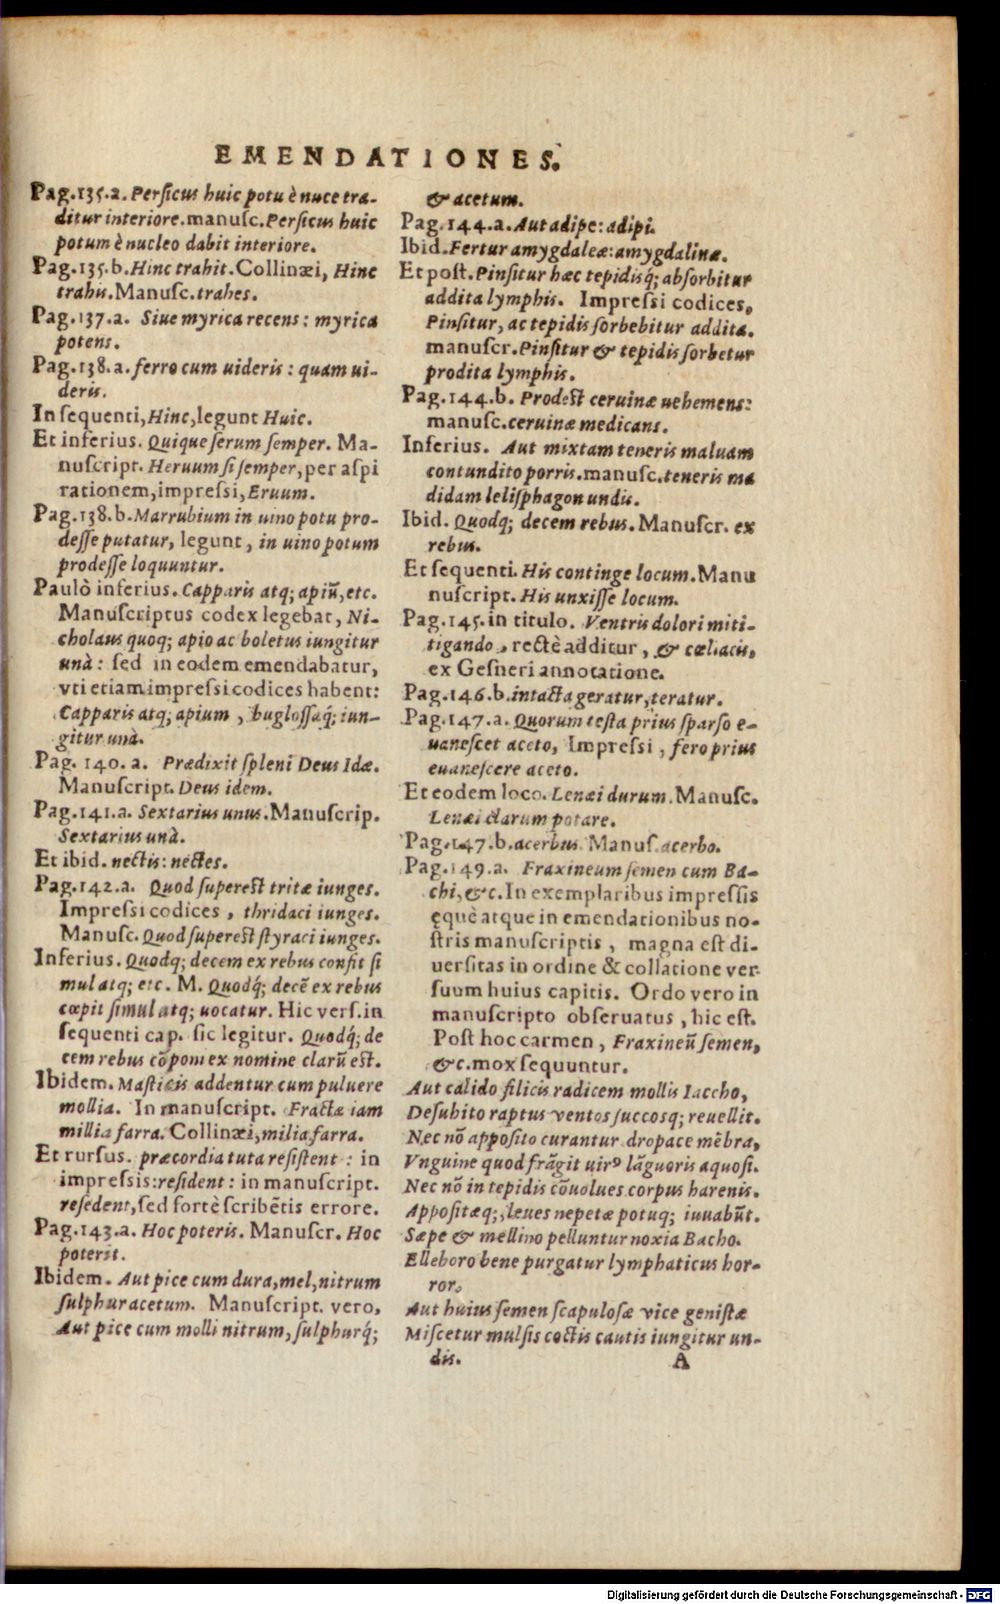 EMENDATIONES.
Pag.135.a. Persicus huic potu è nuce tra-
ditur interiore. manusc. Persicus huic
potum è nucleo dabit interiore.
Pag.135.b. Hinc trahit. Collinæi, Hinc
trahis. Manusc. trahes.
Pag.137.a. Siue myrica recens: myrica
potens.
Pag.138.a. ferro cum uideris: quam ui-
deris.
In sequenti, Hinc, legunt Huic.
Et inferius. Quique serum semper. Ma-
nuscript. Heruum si semper, per aspi
rationem, impressi, Eruum.
Pag.138.b. Marrubium in uino potu pro-
desse putatur, legunt, in uino potum
prodesse loquuntur.
Paulò inferius. Capparis atq; apiũ, etc.
Manuscriptus codex legebat, Ni-
cholaus quoq; apio ac boletus iungitur
unà: sed in eodem emendabatur,
vti etiam impressi codices habent:
Capparis atq; apium, buglossaq́; iun-
gitur unà.
Pag. 140. a. Prædixit spleni Deus Idæ.
Manuscript. Deus idem.
Pag.141.a. Sextarius unus. Manuscrip.
Sextarius unà.
Et ibid. nectis: nectes.
Pag.142.a. Quod superest tritæ iunges.
Impressi codices, thridaci iunges.
Manusc. Quod superest styraci iunges.
Inferius. Quodq; decem ex rebus confit si
mul atq; etc. M. Quodq́; decẽ ex rebus
cœpit simul atq; uocatur. Hic vers. in
sequenti cap. sic legitur. Quodq́; de
cem rebus cõponi ex nomine clarũ est.
Ibidem. Masticis addentur cum puluere
mollia. In manuscript. Fractæ iam
millia farra. Collinæi, milia farra.
Et rursus. præcordia tuta resistent: in
impressis: resident: in manuscript.
resedent, sed fortè scribẽtis errore.
Pag.143.a. Hoc poteris. Manuscr. Hoc
poterit.
Ibidem. Aut pice cum dura, mel, nitrum
sulphur acetum. Manuscript. vero,
Aut pice cum molli nitrum, sulphurq́;
& acetum.
Pag.144.a. Aut adipe: adipi.
Ibid. Fertur amygdaleæ: amygdalinæ.
Et post. Pinsitur hæc tepidisq́; absorbitur
addita lymphis. Impressi codices,
Pinsitur, ac tepidis sorbebitur addita.
manuscr. Pinsitur & tepidis sorbetur
prodita lymphis.
Pag.144.b. Prodest ceruinæ uehemens:
manusc. ceruinæ medicans.
Inferius. Aut mixtam teneris maluam
contundito porris. manusc. teneris ma
didam lelisphagon undis.
Ibid. Quodq; decem rebus. Manuscr. ex
rebus.
Et sequenti. His continge locum. Manu
nuscript. His unxisse locum.
Pag.145. in titulo. Ventris dolori miti-
tigando, rectè additur, & cœliacis,
ex Gesneri annotatione.
Pag.146.b. intacta geratur, teratur.
Pag.147.a. Quorum testa prius sparso e-
uanescet aceto, Impressi, fero prius
euanescere aceto.
Et eodem loco. Lenæi durum. Manusc.
Lenæi clarum potare.
Pag.147.b. acerbus. Manus. acerbo.
Pag.149.a. Fraxineum semen cum Ba-
chi, &c. In exemplaribus impressis
ęquè atque in emendationibus no-
stris manuscriptis, magna est di-
uersitas in ordine & collatione ver-
suum huius capitis. Ordo vero in
manuscripto obseruatus, hic est.
Post hoc carmen, Fraxineũ semen,
&c. mox sequuntur.
Aut calido filicis radicem mollis Iaccho,
Desubito raptus ventos succosq; reuellit.
Nec nõ apposito curantur dropace mẽbra,
Vnguine quod frãgit uirꝰ lãguoris aquosi.
Nec nõ in tepidis cõuolues corpus harenis.
Appositæq; leues nepetæ potuq; iuuabũt.
Sæpe & mellino pelluntur noxia Bacho.
Elleboro bene purgatur lymphaticus hor-
ror.
Aut huius semen scapulosæ vice genistæ
Miscetur mulsis coctis cautis iungitur un-
dis.
A
Digitalisierung gefördert durch die Deutsche Forschungsgemeinschaft - DFG